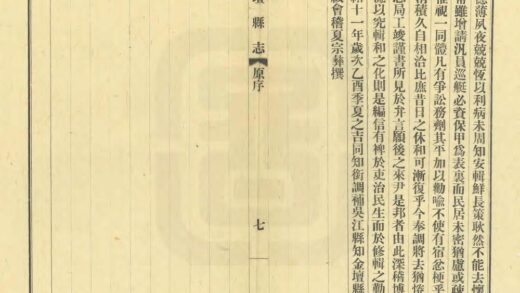 德薄夙夜兢兢恆以利病未周知安輯鮮長策耿然不能去懷
常雖增請汛員巡艇必資保甲爲表裏而民居未密猶慮或疎
惟視一同體凡有爭訟務劑其平加以勸喩不使有宿忿梗乎
情積久自相洽比庶昔日之休和可漸復乎今奉調將去猶惓
志局工竣謹書所見於弁言願後之來尹是邦者由此深稽博
德以究輯和之化則是編信有裨於吏治民生而於修輯之勤
緒十一年歲次乙酉季夏之吉同知銜調補吳江縣知金壇縣
會稽夏宗彝撰
壇縣志
原序
七